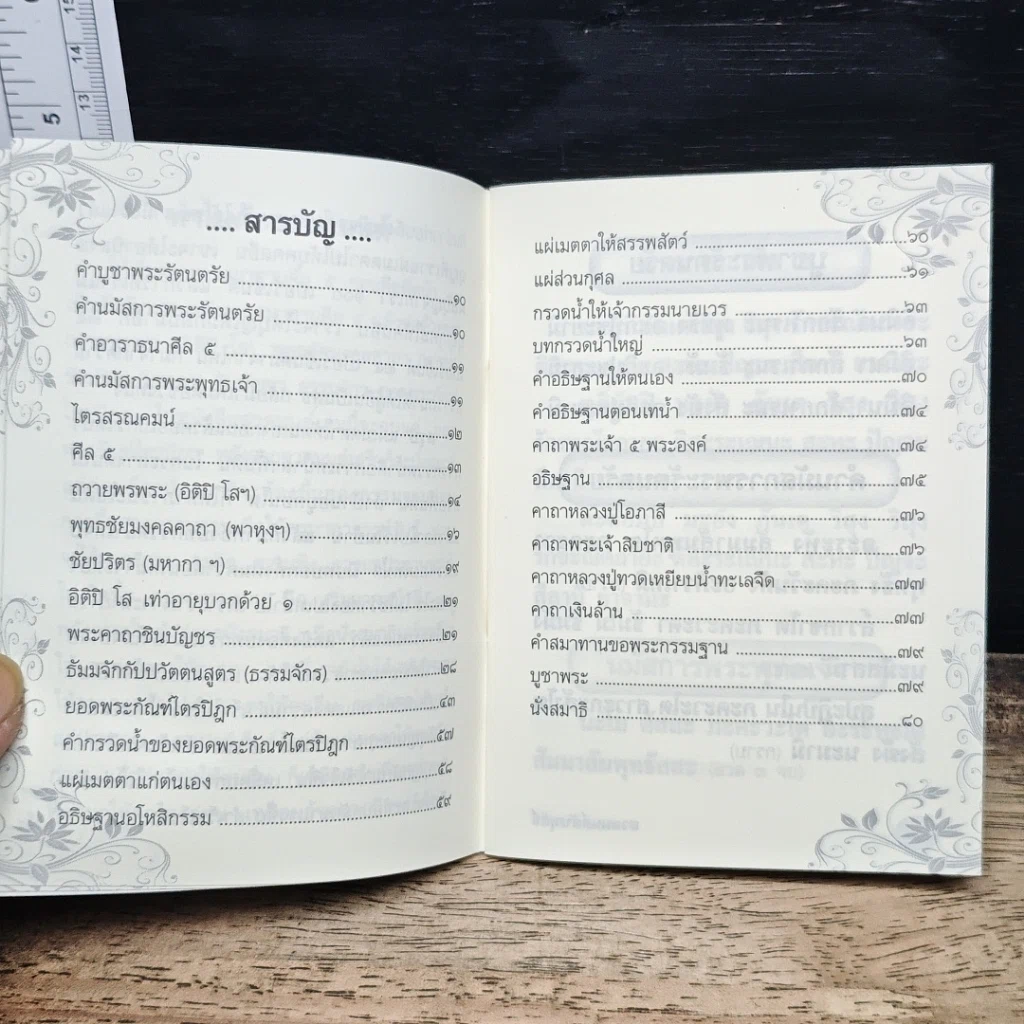 .... สารบัญ ....
คำบูชาพระรัตนตรัย ........๑๐
คำนมัสการพระรัตนตรัย ........๑๐
คำอาราธนาศีล ๕ ........๑๑
คำนมัสการพระพุทธเจ้า ........๑๑
ไตรสรณคมน์ ........๑๒
ศีล ๕ ........๑๓
ถวายพรพระ (อิติปิ โสฯ) ........๑๔
พุทธชัยมงคลคาถา (พาหุงฯ) ........๑๖
ชัยปริตร (มหากา ฯ) ........๑๙
อิติปิ โส เท่าอายุบวกด้วย ๑ ........๒๑
พระคาถาชินบัญชร ........๒๑
ธัมมจักกัปปวัตตนสูตร (ธรรมจักร) ........๒๘
ยอดพระกัณฑ์ไตรปิฎก ........๔๓
คำกรวดน้ำของยอดพระกัณฑ์ไตรปิฎก ........๕๗
แผ่เมตตาแก่ตนเอง ........๕๘
อธิษฐานอโหสิกรรม ........๕๙
แผ่เมตตาให้สรรพสัตว์ ........๖๐
แผ่ส่วนกุศล ........๖๑
กรวดน้ำให้เจ้ากรรมนายเวร ........๖๓
บทกรวดน้ำใหญ่ ........๖๓
คำอธิษฐานให้ตนเอง ........๗๐
คำอธิษฐานตอนเทน้ำ ........๗๔
คาถาพระเจ้า ๕ พระองค์ ........๗๔
อธิษฐาน ........๗๕
คาถาหลวงปู่โอภาสี ........๗๖
คาถาพระเจ้าสิบชาติ ........๗๖
คาถาหลวงปู่ทวดเหยียบน้ำทะเลจืด ........๗๗
คาถาเงินล้าน ........๗๗
คำสมาทานขอพระกรรมฐาน ........๗๙
บูชาพระ ........๗๙
นั่งสมาธิ ........๘๐
15
14
13
5